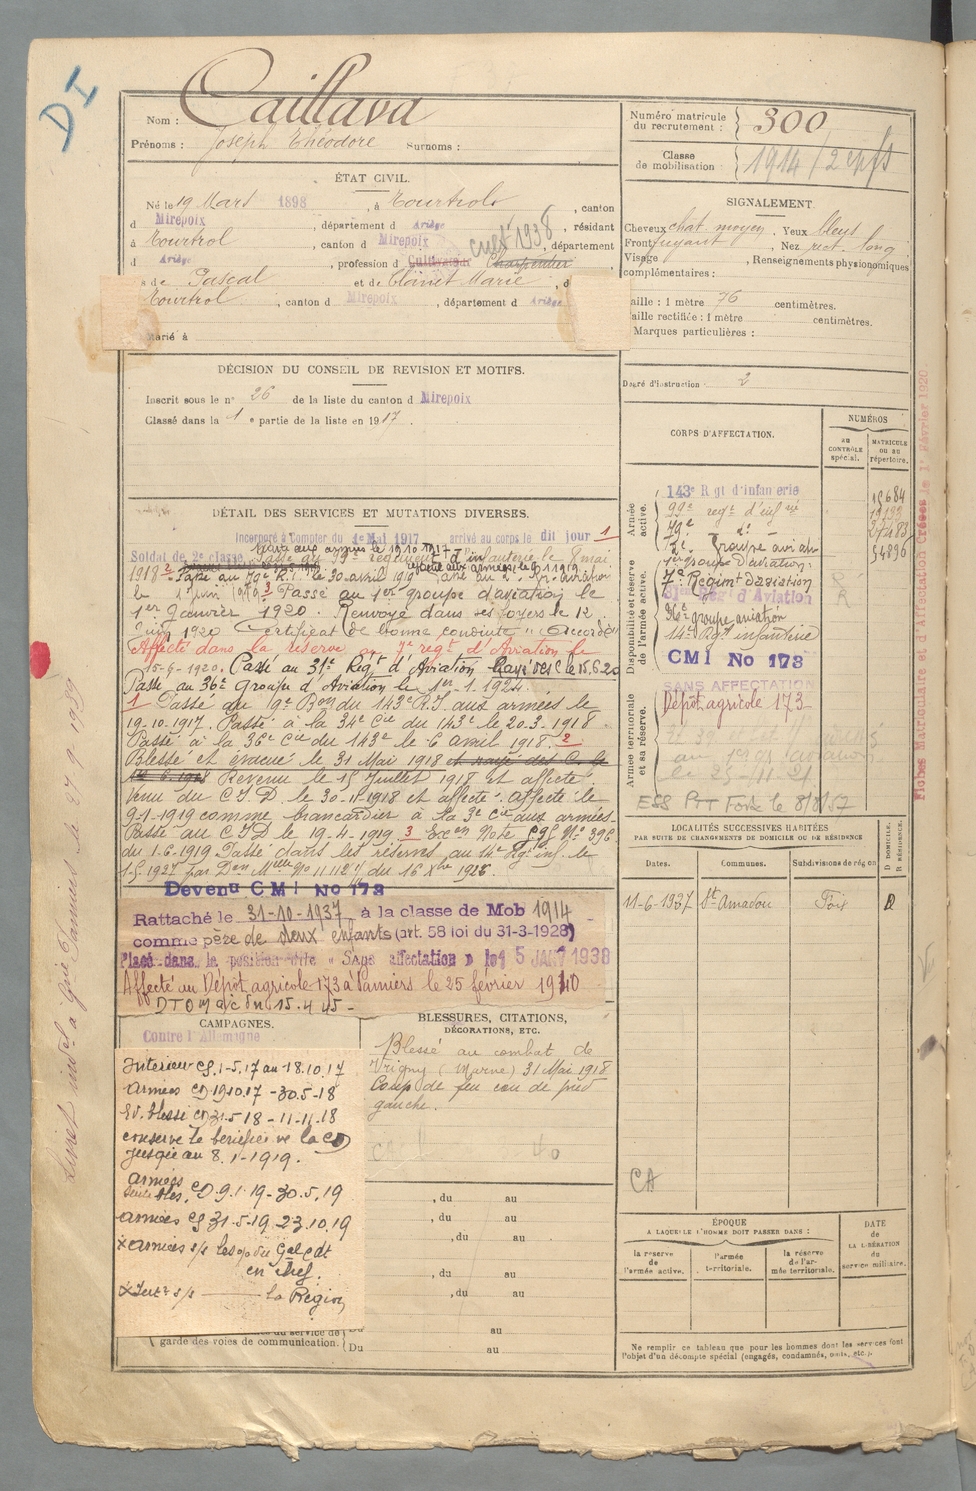 DI
Nom : Caillava
Prénoms : Joseph Théodore Surnoms :
Numéro matricule du recrutement : 300
Classe de mobilisation 1914 / 2 enfts
ÉTAT CIVIL.
Né le 19 Mars 1898, à Tourtrol, canton
d Mirepoix, département d Ariège, résidant
à Tourtrol, canton d Mirepoix, département
d Ariège, profession d Cultivateur Charpentier cult 1938
s de Pascal et de Marie, d
Tourtrol, canton d Mirepoix, département d Ariège
Marié à
SIGNALEMENT.
Cheveux chat. moyen, Yeux bleus
Front fuyant, Nez rect. long
Visage, Renseignements physionomiques
complémentaires :
Taille : 1 mètre 76 centimètres.
Taille rectifiée : 1 mètre centimètres.
Marques particulières :
Degré d'instruction : 2
DÉCISION DU CONSEIL DE REVISION ET MOTIFS.
Inscrit sous le n° 26 de la liste du canton d Mirepoix
Classé dans la 1 e partie de la liste en 1917.
DÉTAIL DES SERVICES ET MUTATIONS DIVERSES.
Incorporé à Compter du 1er Mai 1917 arrivé au corps le dit jour 1
Soldat de 2e classe Passé au 99e régiment d'infanterie le 8 mai
1918 2 Passé au 79e R.I. le 30 avril 1919 Passé au 2e Gr. aviation
le 1er juin 1919 3 Passé au 1er groupe d'aviation le
1er Janvier 1920. Renvoyé dans ses foyers le 12
Juin 1920 Certificat de bonne conduite "Accordé"
Affecté dans la réserve au 7e regt d'Aviation le
15-6-1920. Passé au 31e Regt d'Aviation Rayé des C le 15.6.20
Passé au 36e Groupe d'Aviation le 1er-1-1924.
1 Passé au 9e Bon du 143e R.I. aux armées le
19-10-1917. Passé à la 34e Cie du 143e le 20.3-1918.
Passé à la 36e Cie du 143e le 6 avril 1918. 2
Blessé et évacué le 31 Mai 1918 et rayé des C. le
Revenu le 15 Juillet 1918 et affecté.
Venu du C.I.D. le 30-11-1918 et affecté. Affecté le
9-1-1919 comme brancardier à la 3e Cie aux armées.
Passé au C.I.D le 19-4-1919 3 Exon Note 595 No 396
du 1-6-1919 Passé dans les réserves au 14e Rgt inf. le
1-5-1927 par Don Mlle No 11112 du 16 Xbre 1926.
Devenu CMI No 173
Rattaché le 31-10-1937 à la classe de Mob 1914
comme père de deux enfants (art. 58 loi du 31-3-1928)
Placé dans la position dite « Sans affectation » le 15 JAN 1938
Affecté au Dépôt agricole 173 à Pamiers le 25 février 1940
DTO 15.4.45
CORPS D'AFFECTATION.
NUMÉROS
AU CONTRÔLE spécial.
MATRICULE OU AU répertoire.
Armée active.
143e Rgt d'infanterie 15684
99e regt d'infrie
79e do
2e Groupe aviation
1er groupe d'aviation 54896
Disponibilité et réserve de l'armée active.
7e Régimt d'aviation R
31ème Reg. d'Aviation R
36e groupe aviation
14e Rgt infanterie
CMI No 173
SANS AFFECTATION
Armée territoriale et sa réserve.
Dépôt agricole 173
ESS PTT Foix le 8/8/57
Fiches Matriculaire et d'Affectation Créées le 1er Février 1920.
LOCALITÉS SUCCESSIVES HABITÉES
PAR SUITE DE CHANGEMENTS DE DOMICILE OU DE RÉSIDENCE
Dates. Communes. Subdivisions de région D DOMICILE. R RÉSIDENCE.
11-6-1937 St Amadou Foix D
CA
CAMPAGNES.
Contre l'Allemagne
Intérieur CS 1-5.17 au 18.10.17
armées CD 19.10.17 - 30.5-18
Ev. blessé CD 31-5 18 - 11-11.18
conserve le bénéfice de la CD
jusqu'au 8.1-1919.
armées CD 9.1.19-30.5.19
armées CS 31-5-19 23.10.19
en chef.
la Région
BLESSURES, CITATIONS, DÉCORATIONS, ETC.
Blessé au combat de
Vrigny (Marne) 31 Mai 1918
Coup de feu cou de pied
gauche.
, du au
, du au
, du au
, du au
, du au
Du au
garde des voies de communication. Du au
ÉPOQUE
A LAQUELLE L'HOMME DOIT PASSER DANS :
la réserve de l'armée active.
l'armée territoriale.
la réserve de l'armée territoriale.
DATE de LA LIBÉRATION du service militaire.
Ne remplir ce tableau que pour les hommes dont les services font
l'objet d'un décompte spécial (engagés, condamnés, omis, etc.).